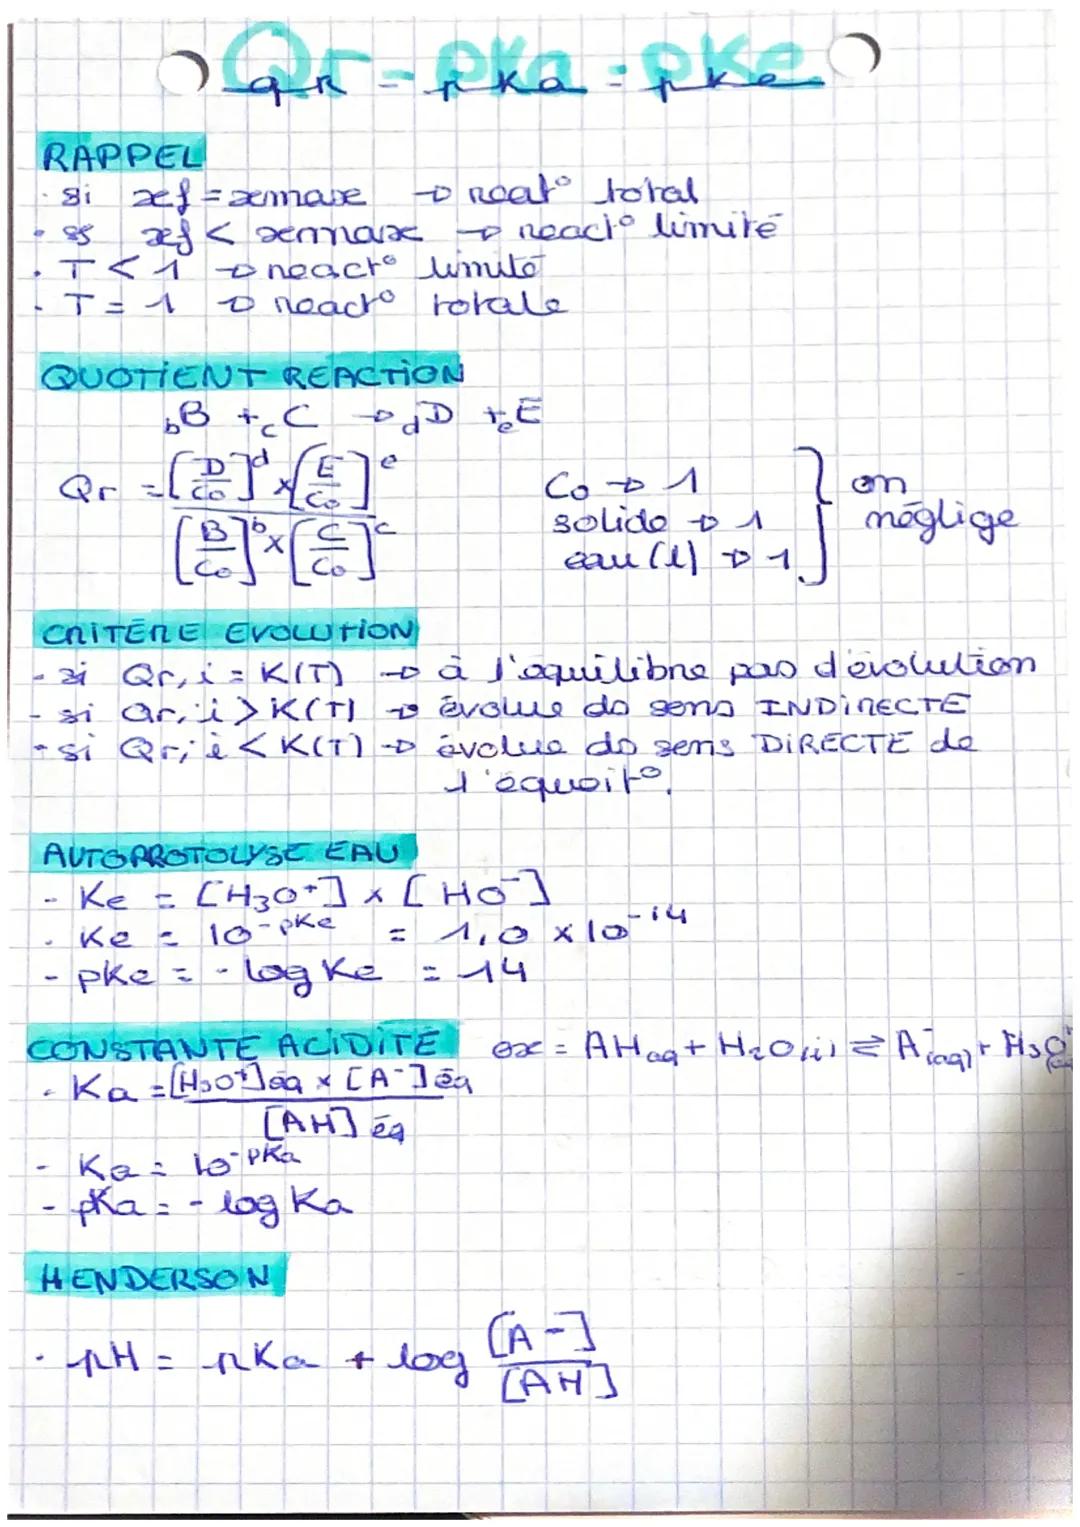 Qr - pKa - pKe
RAPPEL
· si xf = xmax → react° total
· si xf < xmax → react° limité
· T < 1 → react° limité
· T = 1 → react° totale
QUOTIENT REACTION
bB + cC → dD + eE
Qr = ([D/Co]^d x [E/Co]^e) / ([B/Co]^b x [C/Co]^c)
Co → 1
solide → 1
eau (l) → 1
} on néglige
CRITÈRE EVOLUTION
- si Qr,i = K(T) → à l'équilibre pas d'évolution
- si Qr,i > K(T) → évolue ds sens INDIRECTE
- si Qr,i < K(T) → évolue ds sens DIRECTE de
l'équoit°.
AUTOPROTOLYSE EAU
- Ke = [H3O+] x [HO-]
- Ke = 10^-pKe = 1,0 x 10^-14
- pKe = - log Ke = 14
CONSTANTE ACIDITÉ ex = AH aq + H2O(l) ⇌ A-(aq) + H3O+
- Ka = [H3O+]éq x [A-]éq / [AH]éq
- Ka = 10^-pKa
- pKa = - log Ka
HENDERSON
· pH = pKa + log [A-] / [AH]